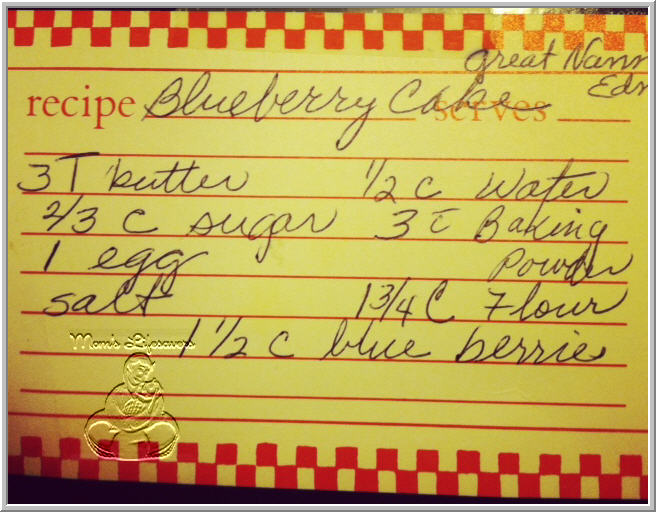 Great Nann
Edn
recipe Blueberry Cake serves
3 T butter 1/2 c water
2/3 c sugar 3 t Baking
Powder
1 egg
salt 1 3/4 C Flour
Mom's Lifesavers
1 1/2 c blue berries